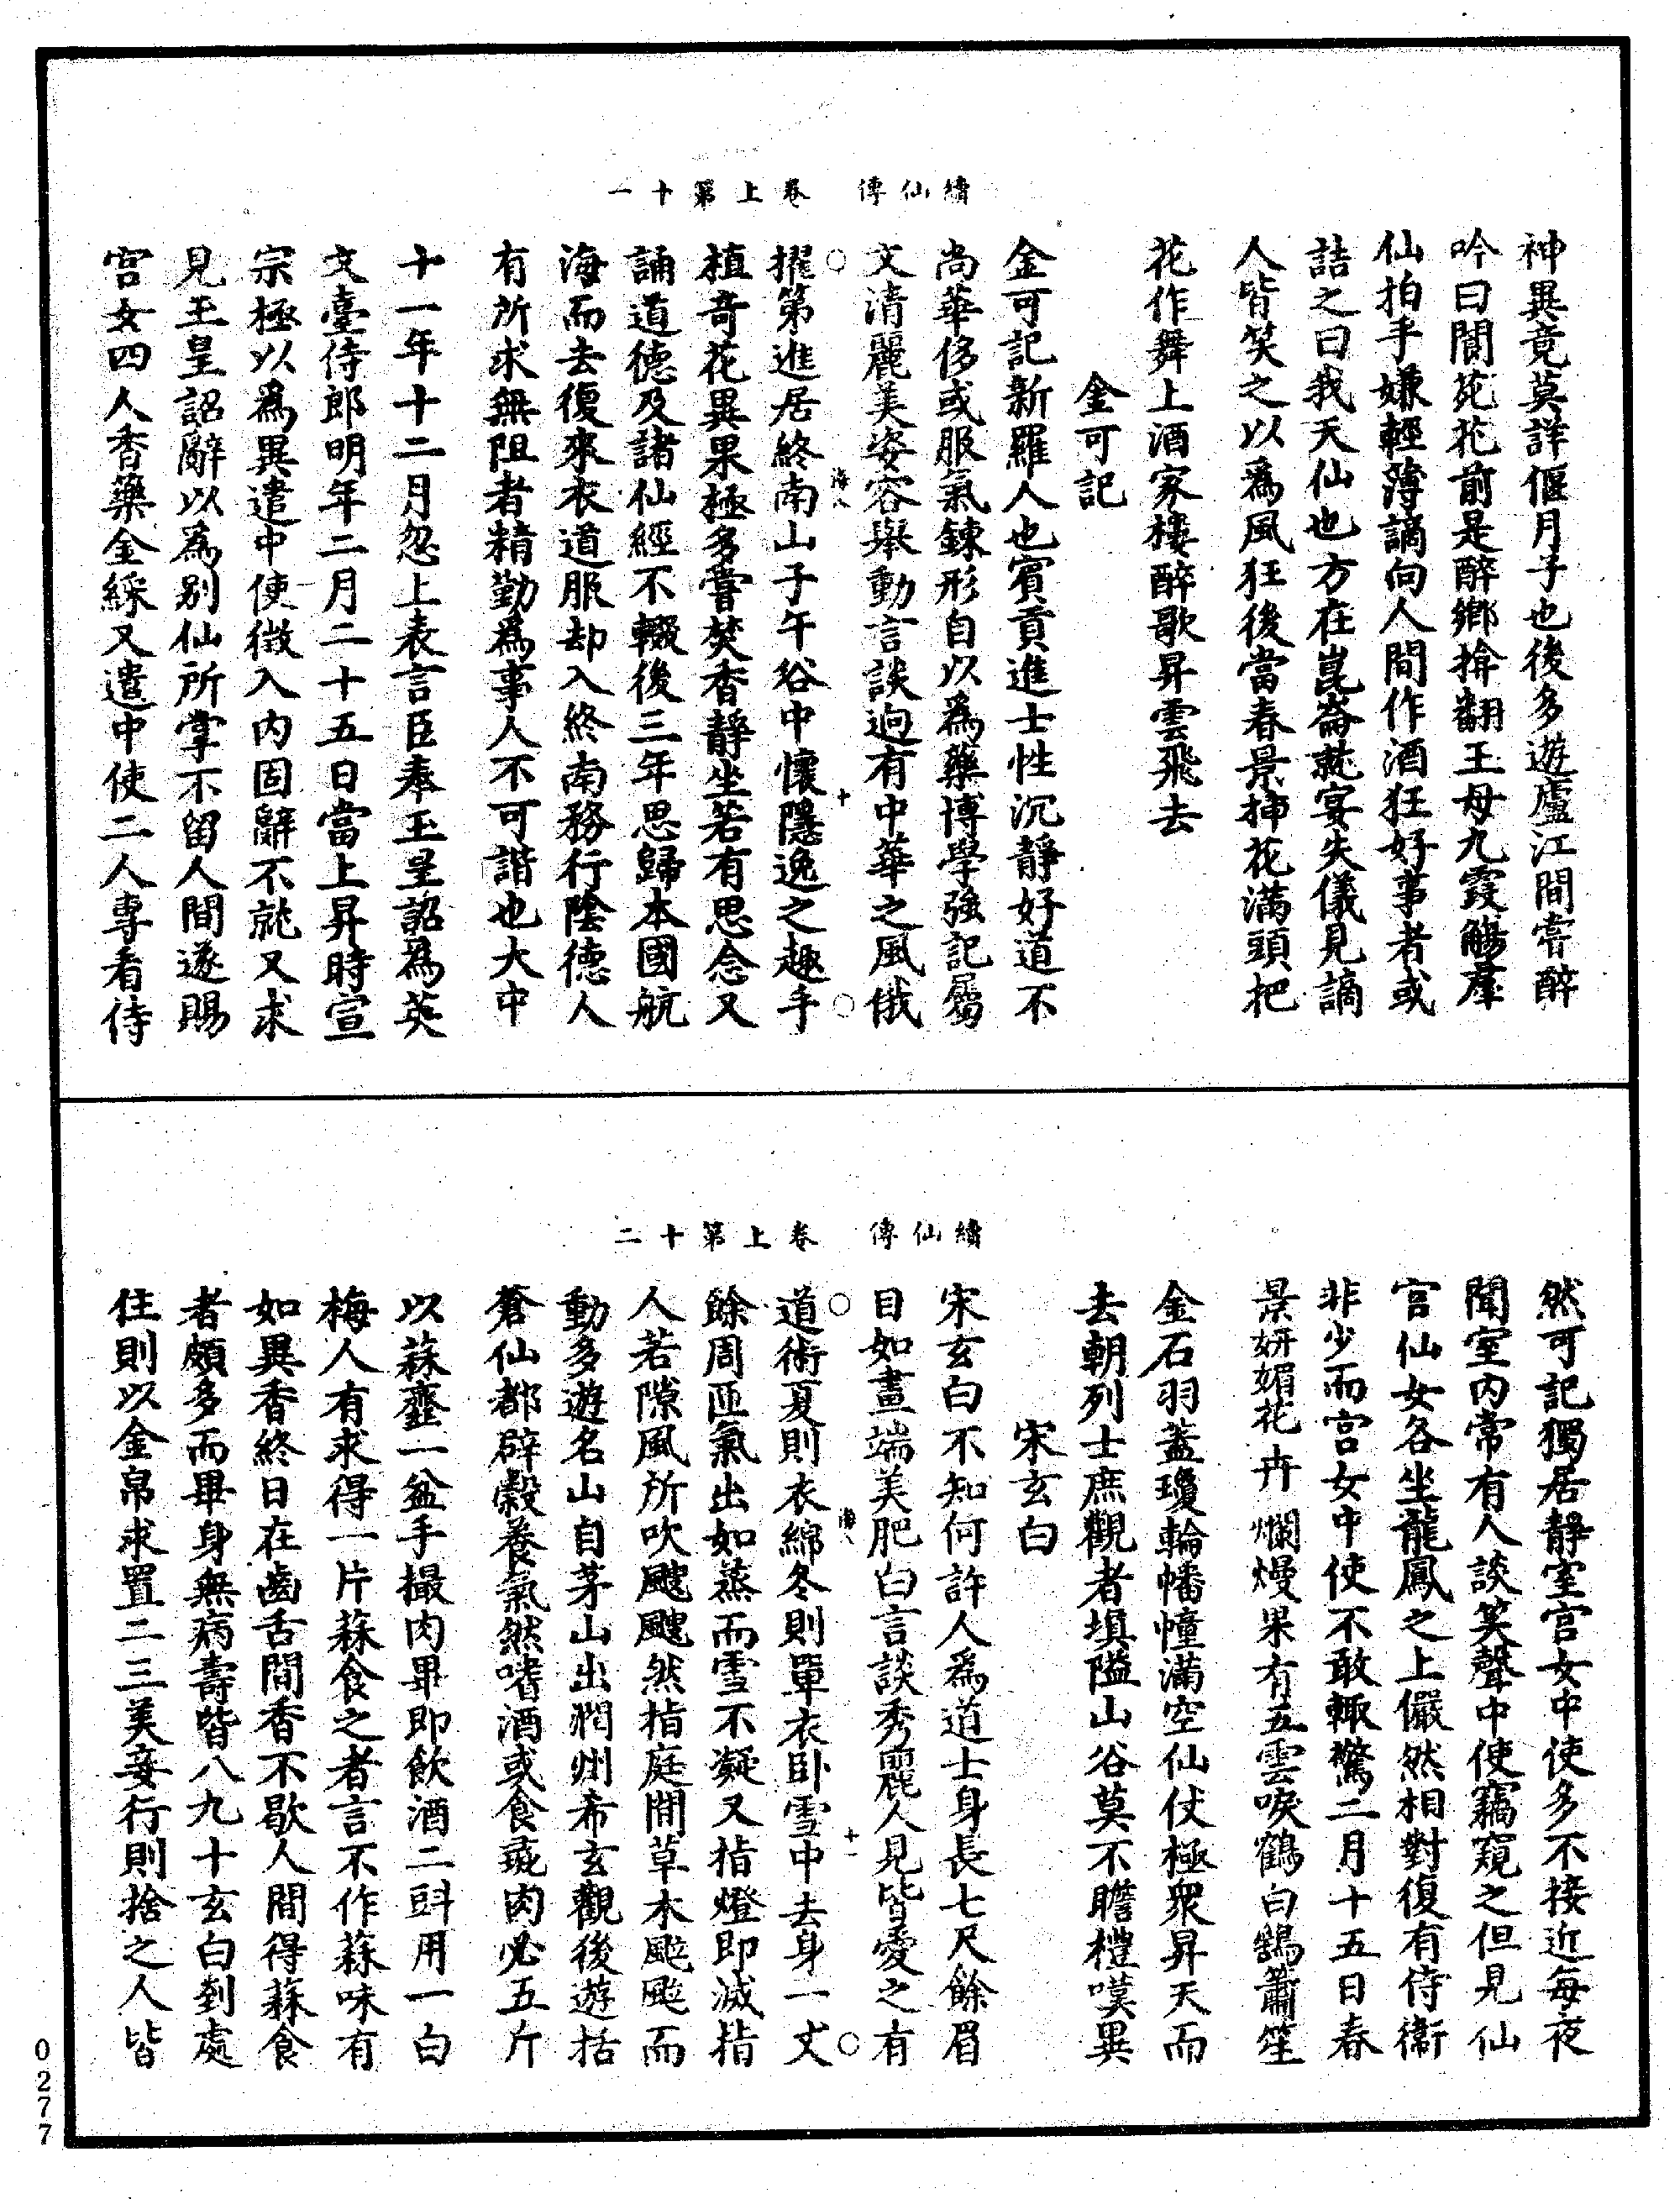 續仙傳　卷上第十一
神異竟莫詳偓月子也後多遊廬江間甞醉
吟曰閬苑花前是醉鄉揜翻王母九霞觴羣
仙拍手嫌輕薄謫向人間作酒狂好事者或
詰之曰我天仙也方在崑崙就宴失儀見謫
人皆笑之以爲風狂後當春景揷花滿頭把
花作舞上酒家樓醉歌昇雲飛去
金可記
金可記新羅人也賓貢進士性沉靜好道不
尚華侈或服氣鍊形自以爲藥博學強記屬
文清麗美姿容舉動言談迥有中華之風俄
擢第進居終南山子午谷中懷隱逸之趣手
植奇花異果極多甞焚香靜坐若有思念又
誦道德及諸仙經不輟後三年思歸本國航
海而去復來衣道服却入終南務行陰德人
有所求無阻者精勤爲事人不可諧也大中
十一年十二月忽上表言臣奉玉皇詔爲英
文臺侍郎明年二月二十五日當上昇時宣
宗極以爲異遣中使徵入內固辭不就又求
見玉皇詔辭以爲別仙所掌不留人間遂賜
宮女四人香藥金綵又遣中使二人專看侍
續仙傳　卷上第十二
然可記獨居靜室宮女中使多不接近每夜
聞室內常有人談笑聲中使竊窺之但見仙
官仙女各坐龍鳳之上儼然相對復有侍衞
非少而宮女中使不敢輙驚二月十五日春
景妍媚花卉爛熳果有五雲唳鶴白鵠簫笙
金石羽蓋瓊輪幡幢滿空仙仗極衆昇天而
去朝列士庶觀者填隘山谷莫不瞻禮嘆異
宋玄白
宋玄白不知何許人爲道士身長七尺餘眉
目如畫端美肥白言談秀麗人見皆愛之有
道術夏則衣綿冬則單衣卧雪中去身一丈
餘周匝氣出如蒸而雪不凝又指燈即滅指
人若隙風所吹颼颼然指庭間草木颭颭而
動多遊名山自茅山出潤州希玄觀後遊括
蒼仙都辟穀養氣然嗜酒或食彘肉必五斤
以蒜虀一盆手撮肉畢即飲酒二㪷用一白
梅人有求得一片蒜食之者言不作蒜味有
如異香終日在齒舌間香不歇人間得蒜食
者頗多而畢身無病壽皆八九十玄白到處
住則以金帛求置二三美妾行則捨之人皆
0277